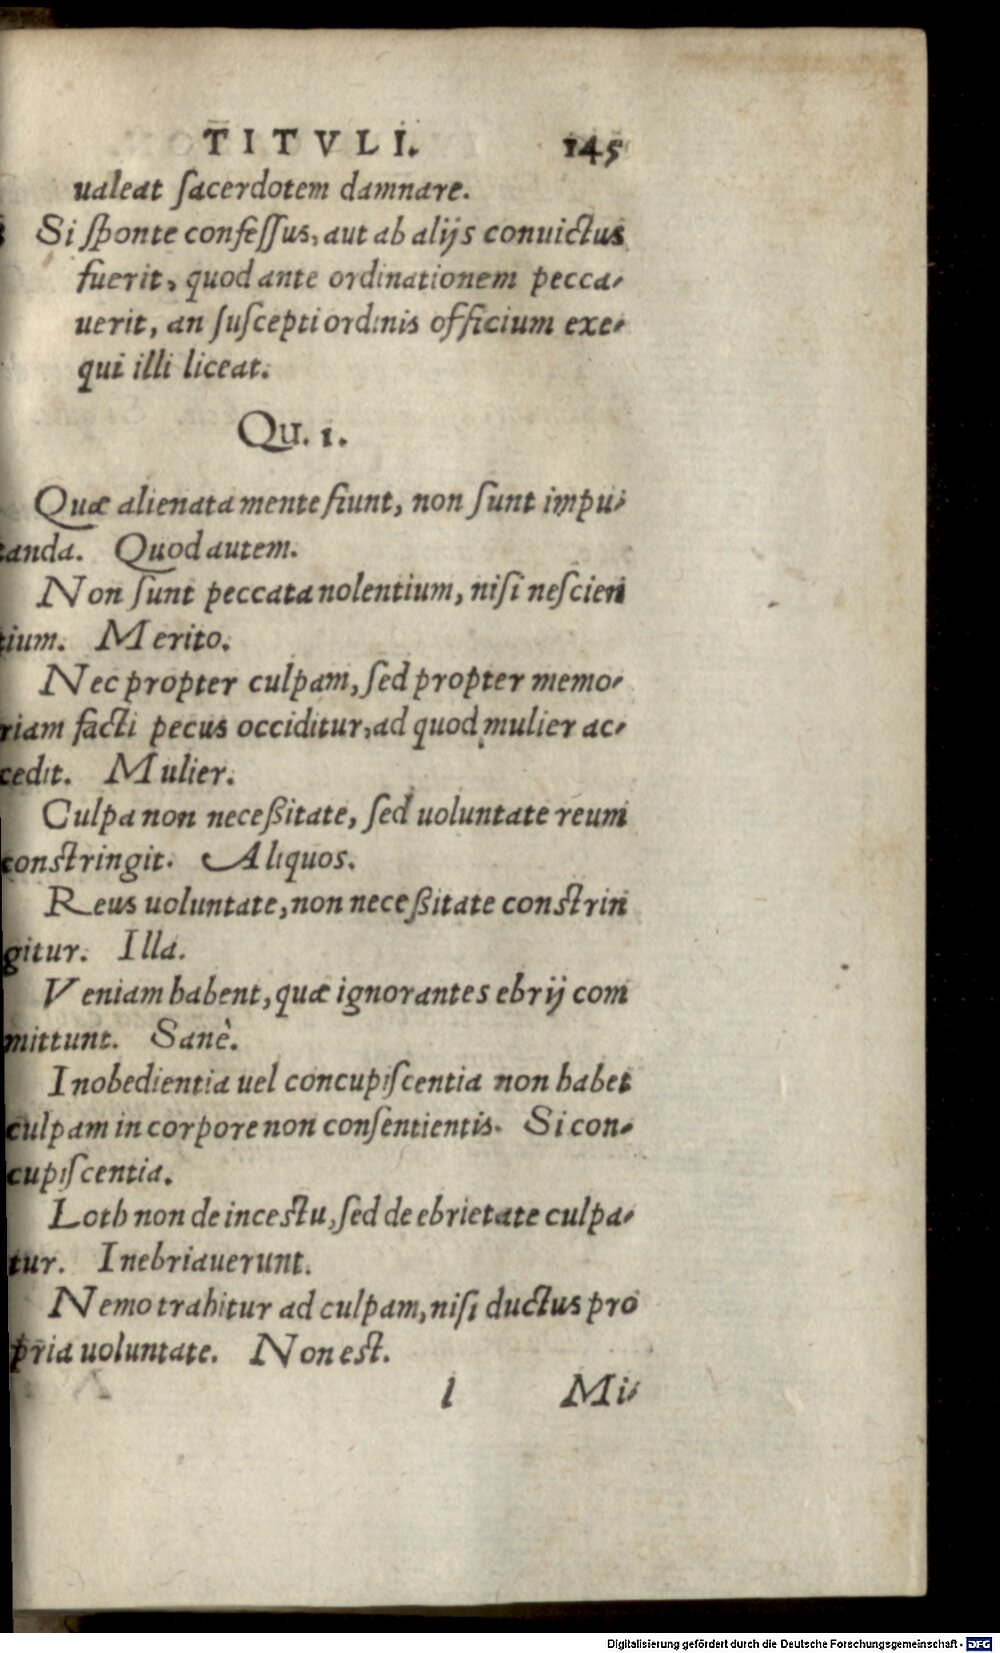 TITVLI. 145
ualeat ſacerdotem damnare.
Si ſponte confeſſus, aut ab alijs conuictus
fuerit, quod ante ordinationem pecca-
uerit, an ſuſcepti ordinis officium exe-
qui illi liceat.
Qu. 1.
Quæ alienata mente fiunt, non ſunt impu-
tanda. Quod autem.
Non ſunt peccata nolentium, niſi neſcien
tium. Merito.
Nec propter culpam, ſed propter memo-
riam facti pecus occiditur, ad quod mulier ac-
cedit. Mulier.
Culpa non neceßitate, ſed uoluntate reum
conſtringit. Aliquos.
Reus uoluntate, non neceßitate conſtrin
gitur. Illa.
Veniam habent, quæ ignorantes ebrij com
mittunt. Sanè.
Inobedientia uel concupiſcentia non habet
culpam in corpore non conſentientis. Si con-
cupiſcentia.
Loth non de inceſtu, ſed de ebrietate culpa-
tur. Inebriauerunt.
Nemo trahitur ad culpam, niſi ductus pro
pria uoluntate. Non eſt.
l Mi-
Digitalisierung gefördert durch die Deutsche Forschungsgemeinschaft - DFG